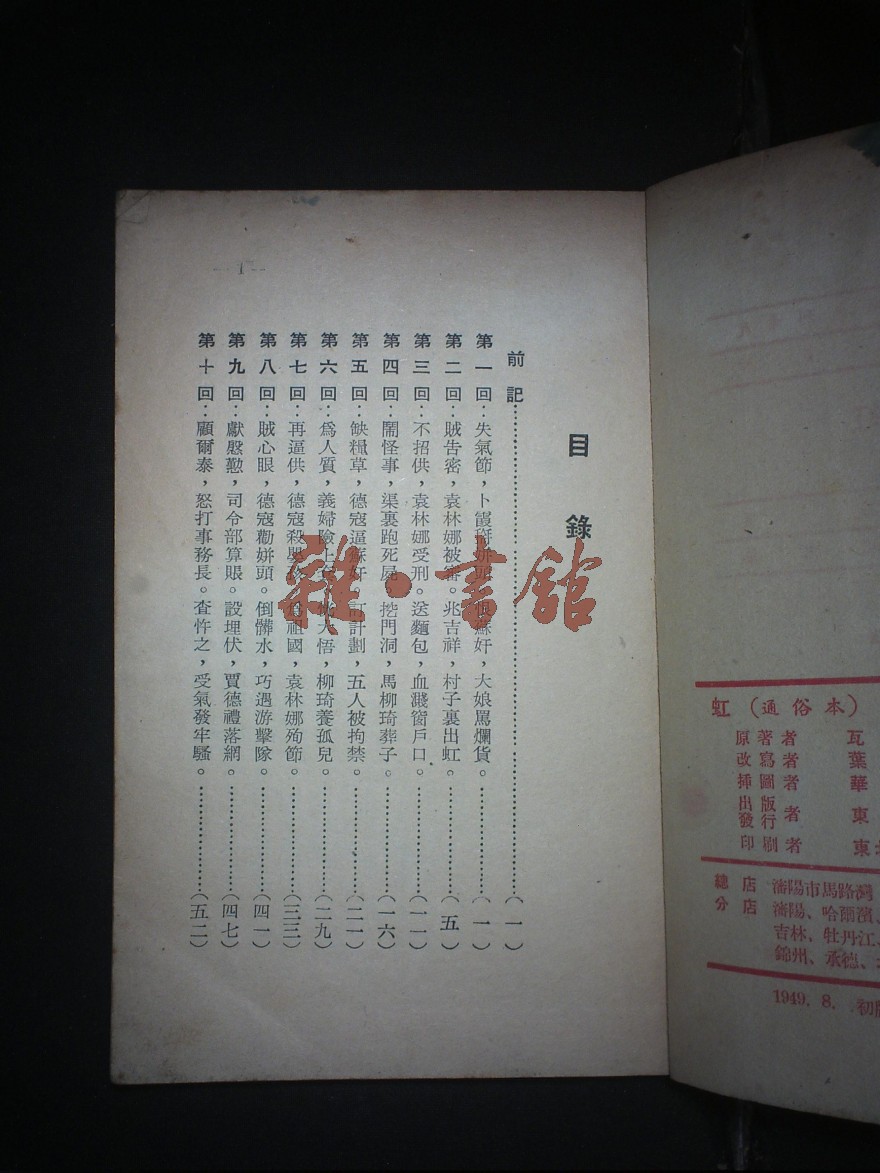 目錄
前記……(一)
第一回：失氣節，卜霞訝姘頭。恨蘇奸，大娘罵爛貨。……(一)
第二回：賊告密，袁林娜被審。兆吉祥，村子裏出虹。……(五)
第三回：不招供，袁林娜受刑。送麵包，血濺窗戶口。……(一一)
第四回：鬧怪事，渠裏跑死屍。挖門洞，馬柳琦葬子。……(一六)
第五回：缺糧草，德寇逼蘇奸。訂計劃，五人被拘禁。……(二一)
第六回：爲人質，義婦險上 大悟，柳琦養孤兒。……(二九)
第七回：再逼供，德寇殺嬰 祖國，袁林娜殉節。……(三三)
第八回：賊心眼，德寇勸姘頭。倒髒水，巧遇游擊隊。……(四一)
第九回：獻慇懃，司令部算賬。設埋伏，賈德禮落網。……(四七)
第十回：顧爾泰，怒打事務長。査忤之，受氣發牢騷。……(五二)
1
雜·書館
虹（通俗本）
原著者 瓦
改寫者 葉
挿圖者 華
出版發行者 東
印刷者 東北
總店 瀋陽市馬路灣
分店 瀋陽、哈爾濱、
吉林、牡丹江、
錦州、承德、
1949. 8. 初版